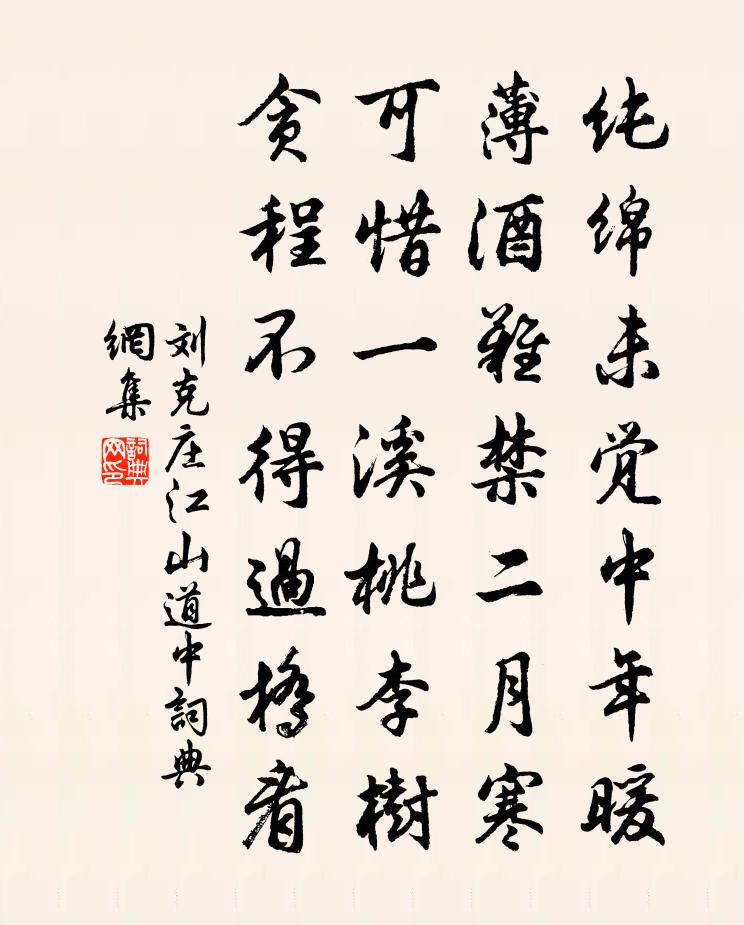 纯绵未觉中年暖
薄酒难禁二月寒
可惜一溪桃李樹
贪程不得過橋看
刘克庄江山道中詞典
網集
詞典
网印